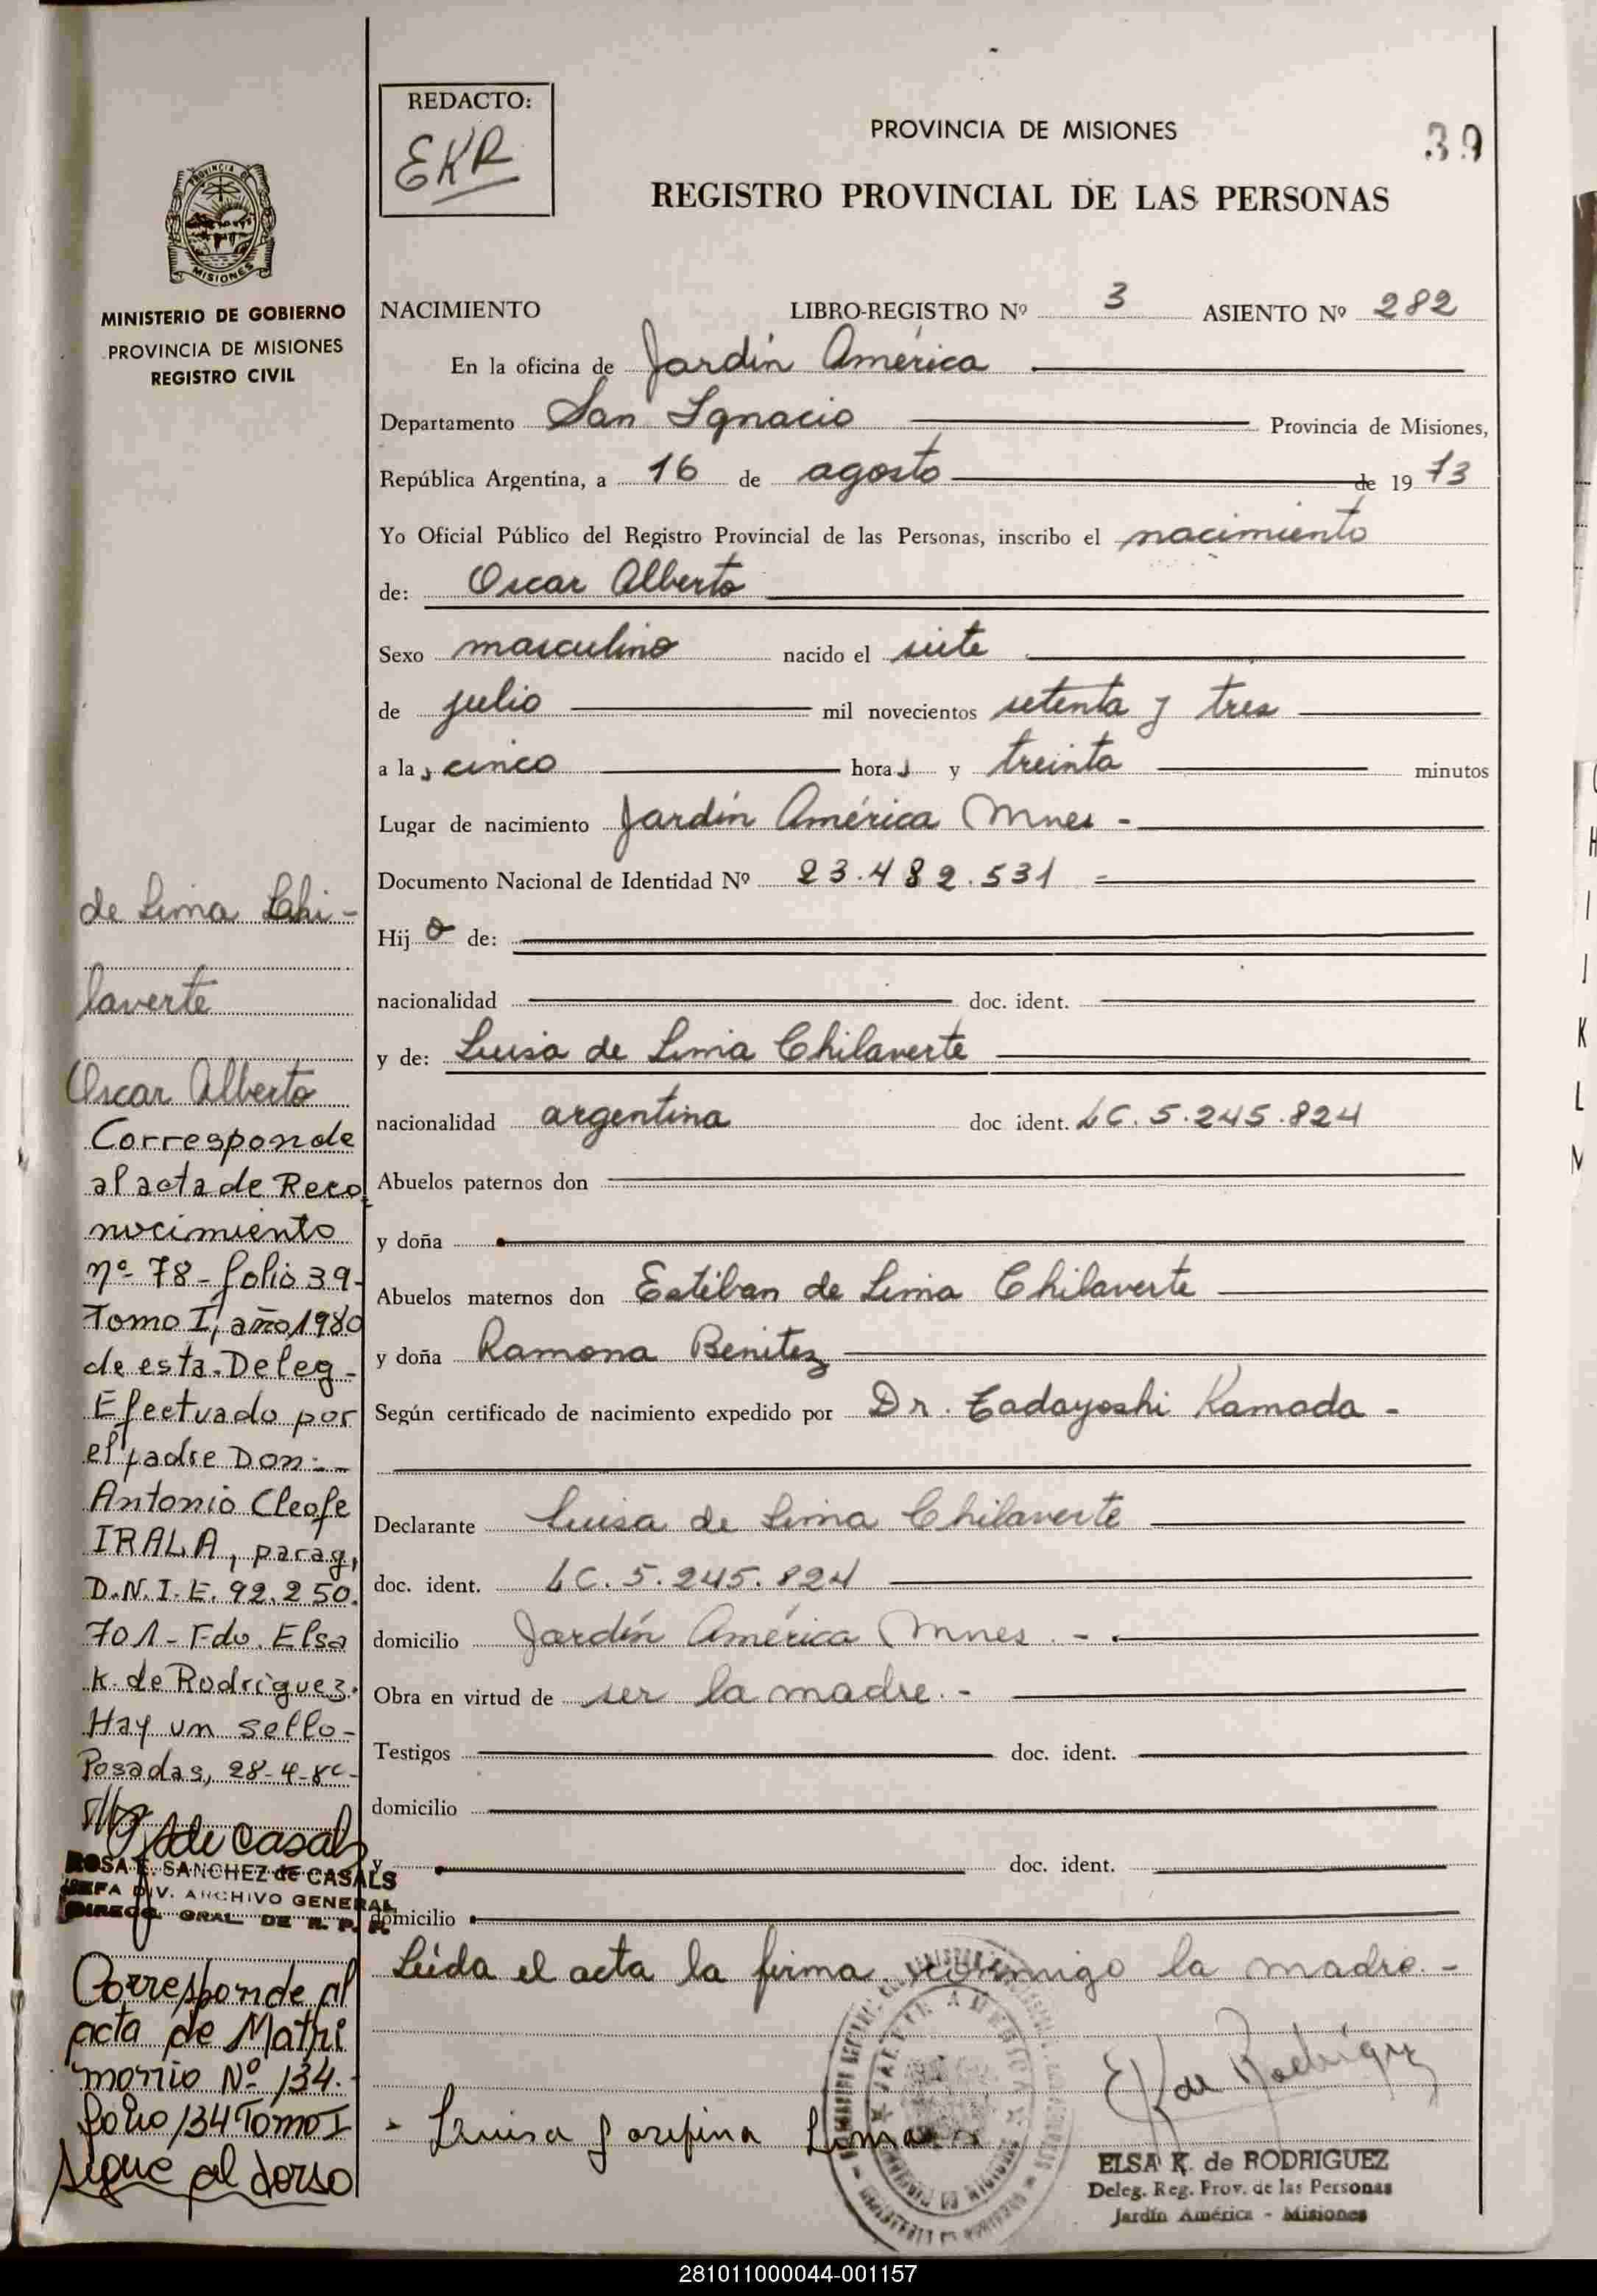 REDACTO:
EKR
PROVINCIA DE MISIONES
39
REGISTRO PROVINCIAL DE LAS PERSONAS
PROVINCIA DE
MISIONES
MINISTERIO DE GOBIERNO
PROVINCIA DE MISIONES
REGISTRO CIVIL
NACIMIENTO LIBRO-REGISTRO Nº 3 ASIENTO Nº 282
En la oficina de Jardín América
Departamento San Ignacio Provincia de Misiones,
República Argentina, a 16 de agosto de 1973
Yo Oficial Público del Registro Provincial de las Personas, inscribo el nacimiento
de: Oscar Alberto
Sexo masculino nacido el siete
de julio mil novecientos setenta y tres
a las cinco horas y treinta minutos
Lugar de nacimiento Jardín América Mnes -
Documento Nacional de Identidad Nº 23.482.531 =
Hijo de:
nacionalidad doc. ident.
y de: Luisa de Lima Chilaverte
nacionalidad argentina doc ident. LC. 5.245.824
Abuelos paternos don
y doña
Abuelos maternos don Estiban de Lima Chilaverte
y doña Ramona Benitez
Según certificado de nacimiento expedido por Dr. Tadayoshi Kamada -
Declarante Luisa de Lima Chilaverte
doc. ident. LC. 5.245.824
domicilio Jardín América Mnes. -
Obra en virtud de ser la madre. -
Testigos doc. ident.
domicilio
y doc. ident.
domicilio
Leída el acta la firma conmigo la madre. -
EK de Rodriguez
Luisa Josefina Lima
ELSA K. de RODRIGUEZ
Deleg. Reg. Prov. de las Personas
Jardín América - Misiones
de Lima Chi-
laverte
Oscar Alberto
Corresponde
al acta de Reco
nocimiento
nº 78 - folio 39-
Tomo I, año 1980
de esta Deleg -
Efectuado por
el padre Don:-
Antonio Cleofe
IRALA, parag,
D.N.I.E. 92.250.
701 - Fdo. Elsa
K. de Rodriguez.
Hay un sello -
Posadas, 28-4-80-
de Casals
ROSA E. SANCHEZ de CASALS
JEFA DIV. ARCHIVO GENERAL
DIRECC. GRAL DE R. P. P.
Corresponde al
acta de Matri
monio Nº 134.
folio 134 Tomo I
Sigue al dorso
281011000044-001157